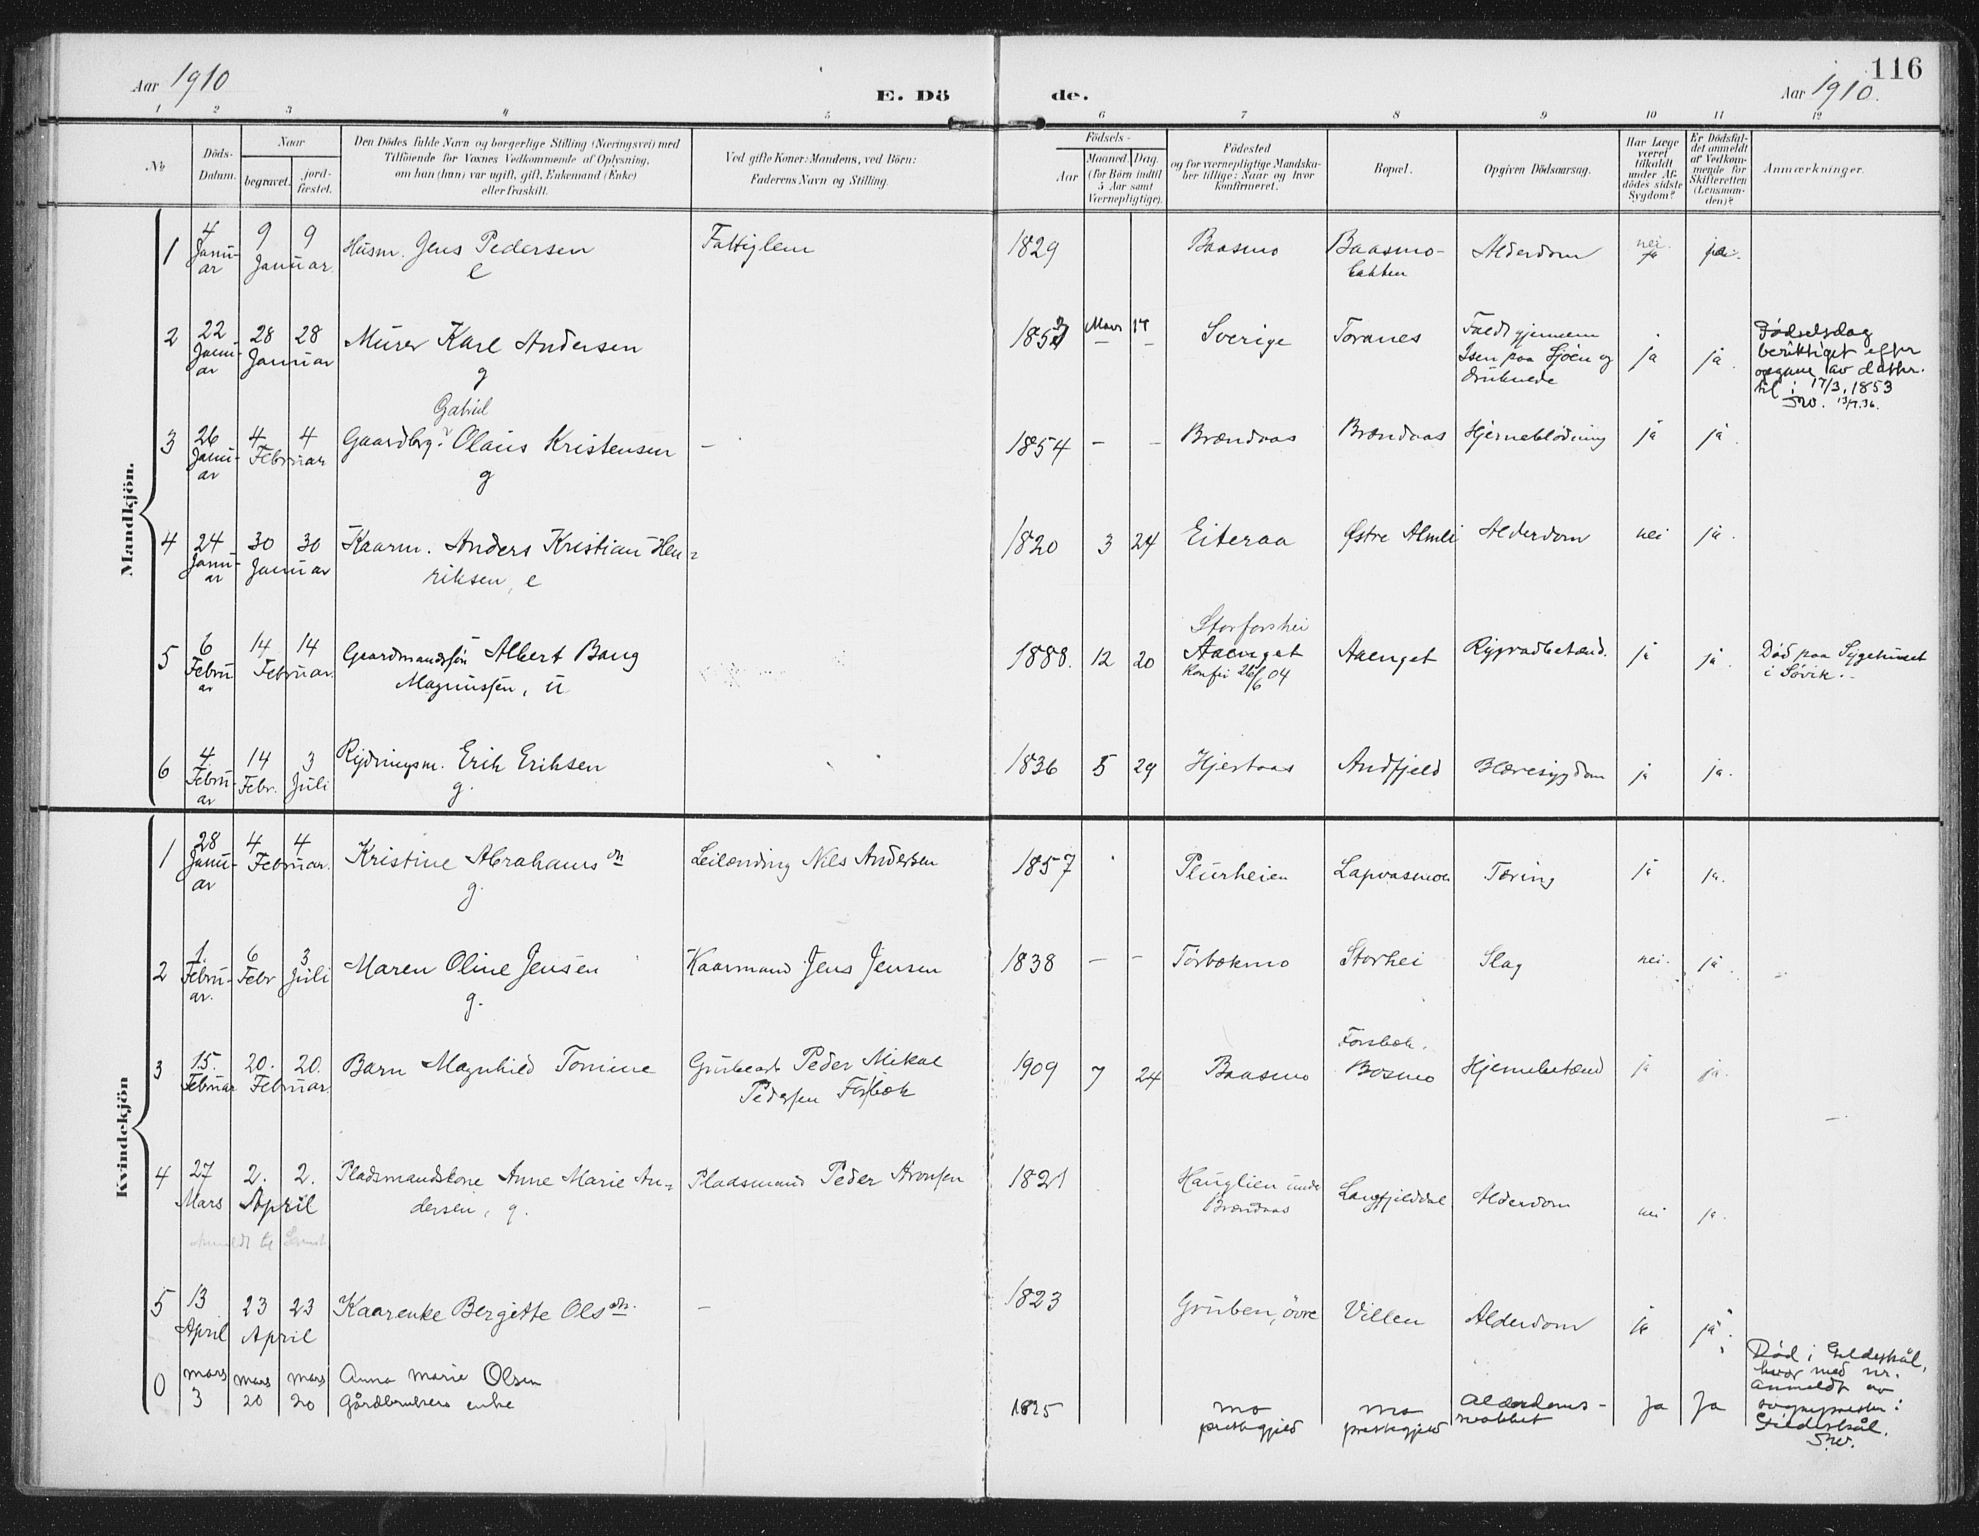 116
Aar 1910
E. Dö de.
Aar 1910.
1 2 3 4 5 6 7 8 9 10 11 12
No. Döds-Datum. Naar begravet. jordfæstet. Den Dödes fulde Navn og borgerlige Stilling (Næringsvei) med Tilföiende for Voxnes Vedkommende af Oplysning, om han (hun) var ugift, gift, Enkemand (Enke) eller fraskilt. Ved gifte Koner: Mandens, ved Börn: Faderens Navn og Stilling. Födsels- Aar Maaned. Dag. (for Börn indtil 5 Aar samt Værnepligtige). Födested og for værnepligtige Mandskaber tillige: Naar og hvor Konfirmeret. Bopæl. Opgiven Dödsaarsag. Har Læge været tilkaldt under Afdödes sidste Sygdom? Er Dödsfaldet anmeldt af Vedkommende for Skifteretten (Lensmanden)? Anmærkninger.
Mandkjön.
1 4 Januar 9 9 Januar Husm. Jens Pedersen e Fattiglem 1829 Baasmo Baasmobakken Alderdom nei
2 22 Januar 28 28 Januar Murer Karl Andersen g 1853 Mars 17 Sverige Toranes Faldt gjennem Isen paa Sjøen og druknede ja ja Fødselsdag beriktiget efter opgave av datter til 17/3, 1853
3 26 Januar 4 4 Februar Gaardbrg. Olaus Kristensen g - 1854 - - Brændaas Brændaas Hjerneblødning ja ja
4 24 Januar 30 30 Januar Kaarm. Anders Kristian Henriksen, e 1820 3 24 Eiteraa Østre Almli Alderdom nei ja.
5 6 Februar 14 14 Februar Gaardmandssøn Albert Bang Magnussen, u 1888. 12 20 Storforshei Aaenget Konfir 26/6 04 Aaenget Rygradbetænd. ja ja. Død paa Sygehuset i Søvik.
6 4 Februar 14 Febr. 3 Juli Rydningsm. Erik Eriksen g. 1836 5 29 Hjertaas Andfjeld Blæresygdom ja ja.
Kvindekjön
1 28 Januar 4 4 Februar. Kristine Abrahamsdn g. Leilænding Nils Andersen 1857 Plurheien Lapvasmoen Tæring ja ja.
2 1. Februar. 6 Febr 3 Juli Maren Oline Jensen g. Kaarmand Jens Jensen 1838 - - Tørbækmo Storhei Slag nei. ja.
3 15 Februar 20. 20. Februar. Barn Magnhild Tomine Grubearb. Peder Mikal Pedersen Forsbæk 1909 7 24 Baasmo Forsbæk. Bosmo Hjernebetænd ja ja.
4 27 Mars 2. 2. April Pladsmandskone Anne Marie Andersen, g. Pladsmand Peder Aronsen 1821 Hauglien under Brændaas Langfjelddal Alderdom nei ja.
5 13 April 23 23 April Kaarenke Bergitte Olsdtr. - 1823 Gruben, övre Villen Alderdom ja ja.
0 mars 3 mars 20 mars 20 Anna Marie Olsen Gårdbrukers enke 1825 Mo prestegjeld Mo prestegjeld Alderdoms- Ja Ja Død i Gildeskål, hvor med nr. anmeldt av sogneprestn i Gildeskål.